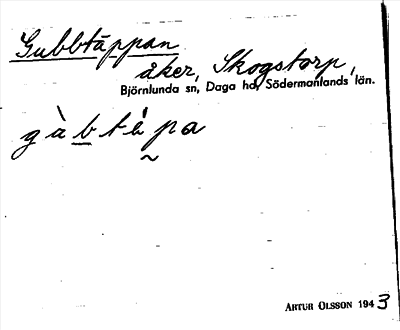 Gubbtäppan
åker, Skogstorp,
Björnlunda sn, Daga hd, Södermanlands län.
ARTUR OLSSON 1943